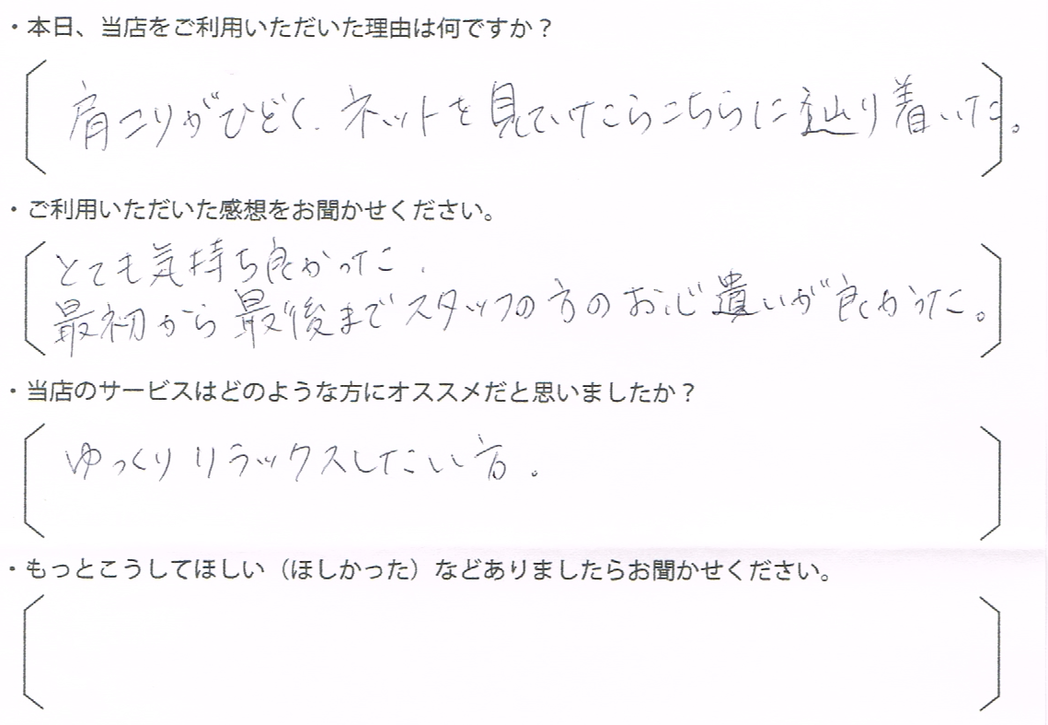 ・本日、当店をご利用いただいた理由は何ですか?
肩こりがひどく、ネットを見ていたらこちらに辿り着いた。
・ご利用いただいた感想をお聞かせください。
とても気持ち良かった。
最初から最後までスタッフの方のお心遣いが良かった。
・当店のサービスはどのような方にオススメだと思いましたか?
ゆっくりリラックスしたい方。
・もっとこうしてほしい(ほしかった)などありましたらお聞かせください。